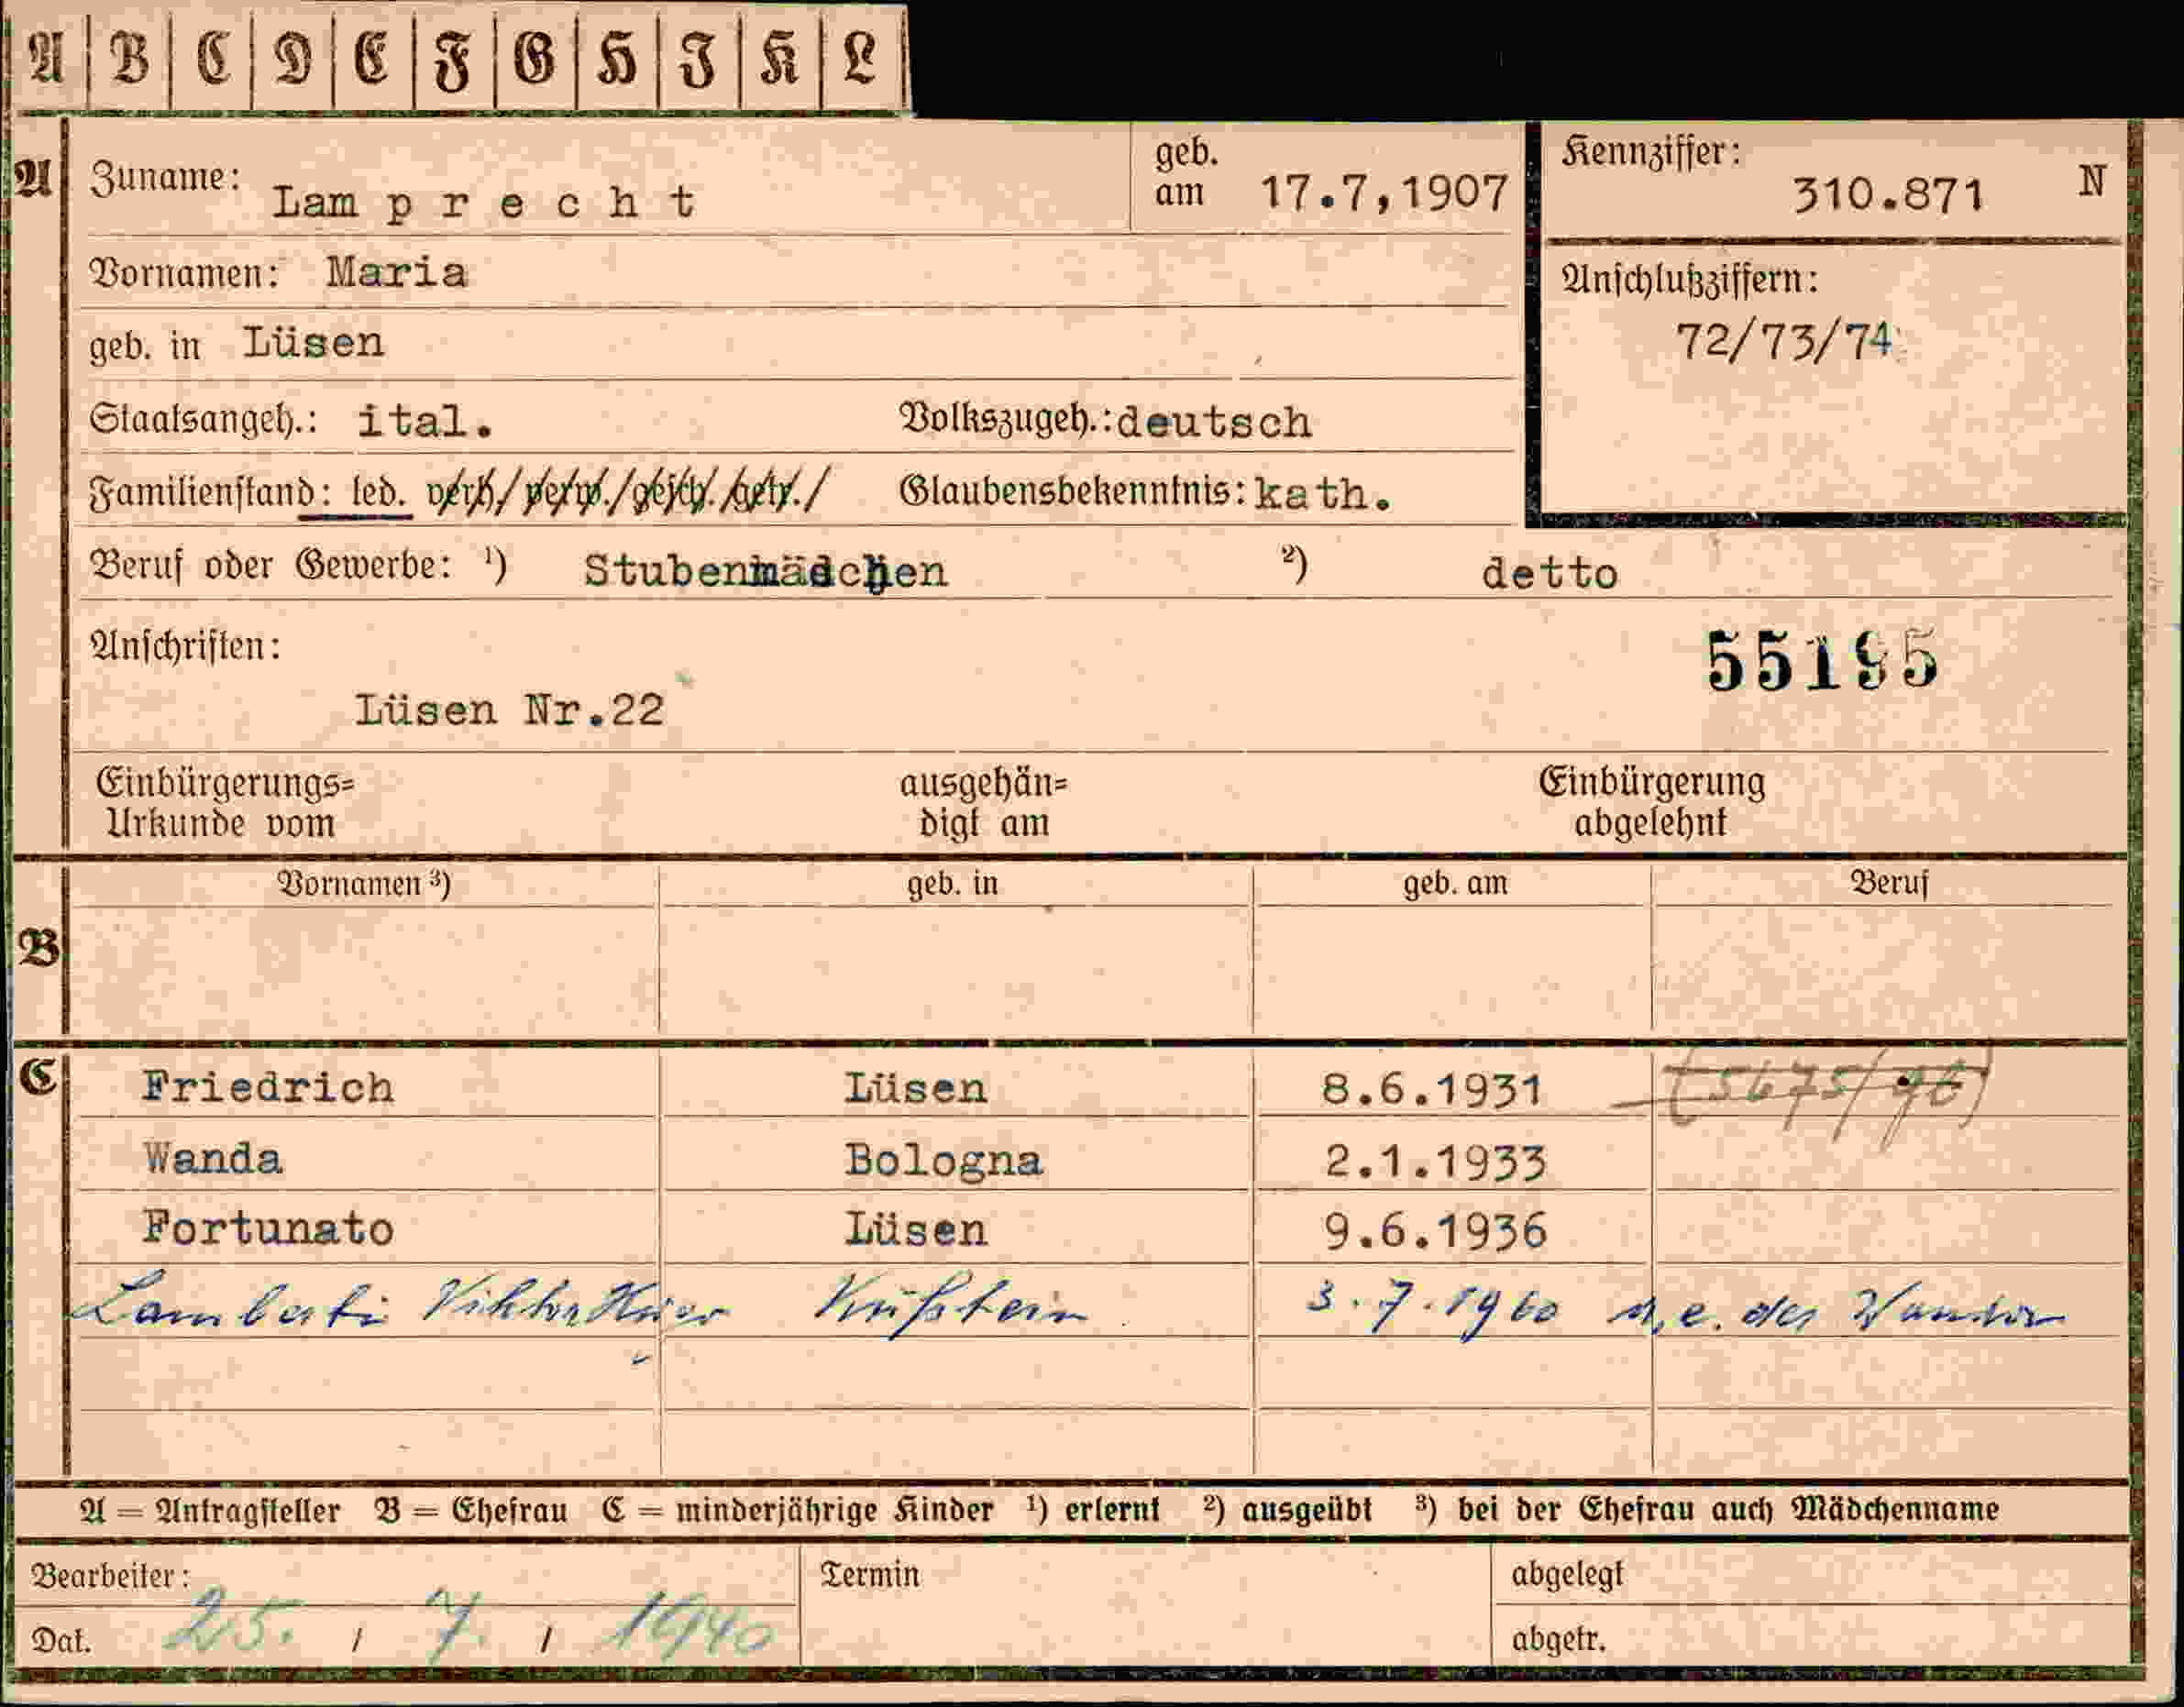 A B C D E F G H I K L
A Zuname: Lam p r e c h t geb. am 17.7,1907 Kennziffer: 310.871 N
Vornamen: Maria
Anschlußziffern:
geb. in Lüsen 72/73/74
Staatsangeh.: ital. Volkszugeh.: deutsch
Familienstand: led. verh./verw./gesch./getr./ Glaubensbekenntnis: kath.
Beruf oder Gewerbe: ¹) Stubenmädchen ²) detto
Anschriften: 55195
Lüsen Nr.22
Einbürgerungs= ausgehän= Einbürgerung
Urkunde vom digt am abgelehnt
Vornamen ³) geb. in geb. am Beruf
B
C Friedrich Lüsen 8.6.1931
Wanda Bologna 2.1.1933
Fortunato Lüsen 9.6.1936
Lamberti Viktor Kufstein 3.7.1960 u.e. der Wanda
A = Antragsteller B = Ehefrau C = minderjährige Kinder ¹) erlernt ²) ausgeübt ³) bei der Ehefrau auch Mädchenname
Bearbeiter: Termin abgelegt
Dat. 25. / 7. / 1940 abgetr.